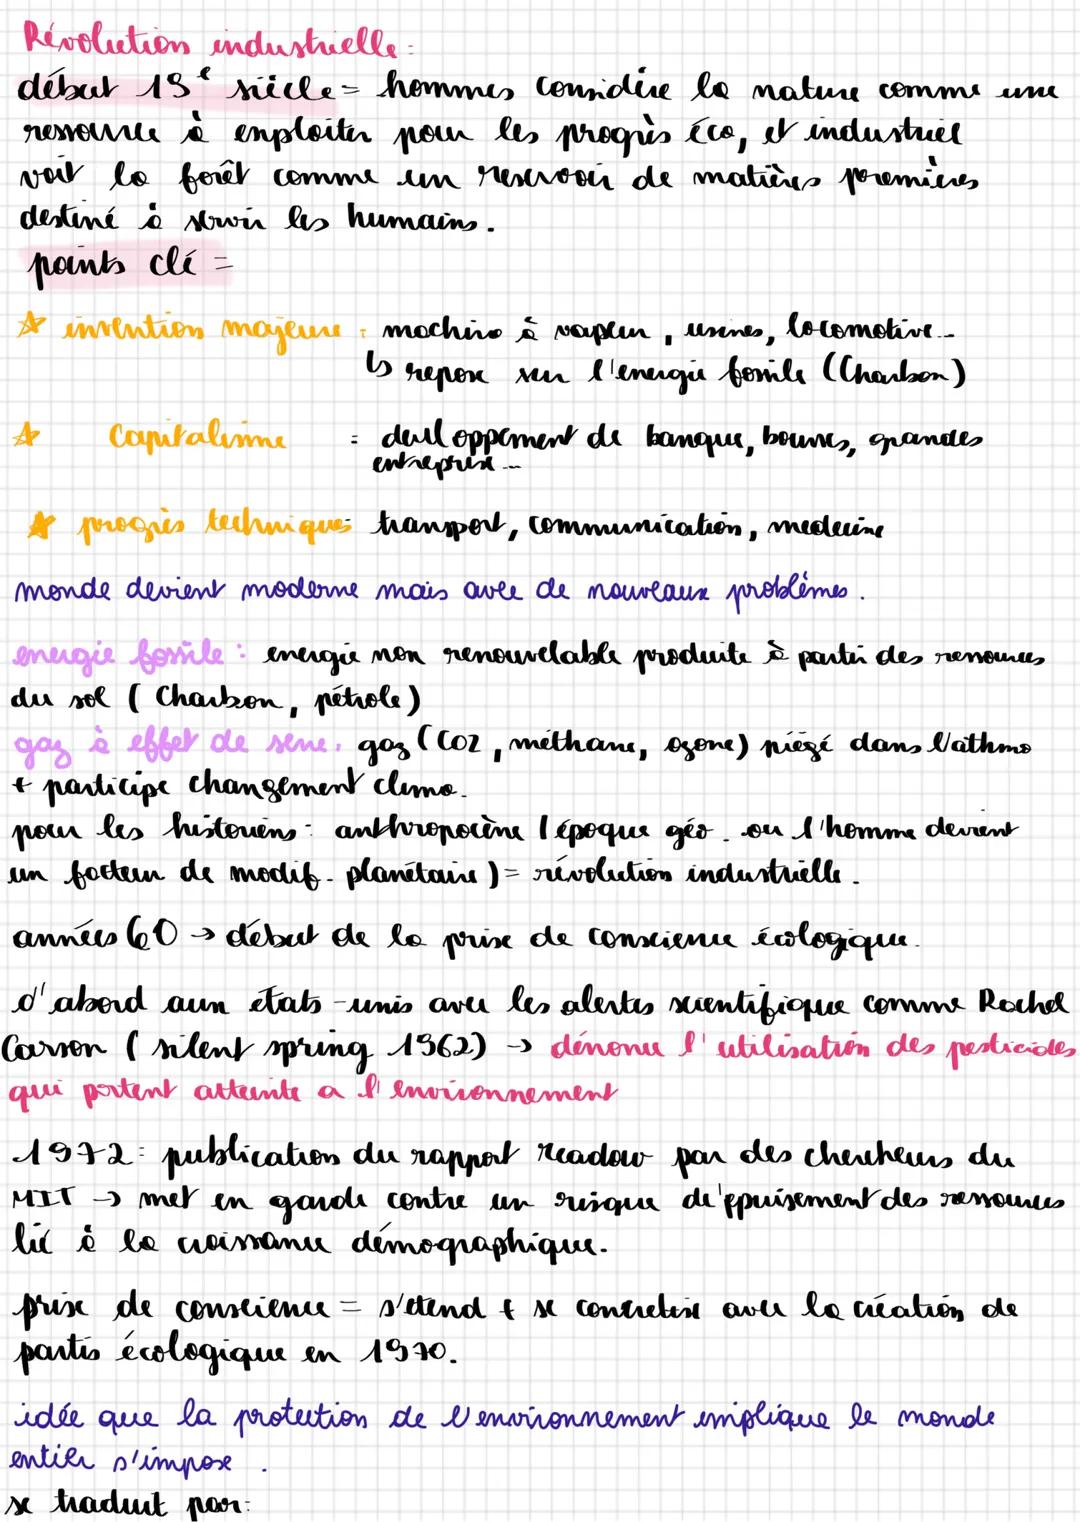 Révolution industrielle:
début 19e siècle = hommes considère la nature comme une
ressource à exploiter pour les progrès éco, et industriel
voit la forêt comme un reservoir de matières premières
destiné à servir les humains.
points clé =
☆ invention majeure : machine à vapeur, usines, locomotive...
↳ repose sur l'energie fossile (Charbon)
☆ Capitalisme = developpement de banque, bourses, grandes
entreprise...
☆ progrès techniques: transport, communication, medecine
monde devient moderne mais avec de nouveaux problèmes.
energie fossile : energie non renouvelable produite à partir des ressources
du sol ( Charbon, pétrole)
gaz à effet de serre: gaz (CO2, méthane, ozone) piégé dans l'athmo
+ participe changement clima.
pour les historiens: anthropocène (époque géo. ou l'homme devient
un facteur de modif. planétaire ) = révolution industrielle.
années 60 → début de la prise de conscience écologique.
d'abord aux états-unis avec les alertes scientifique comme Rachel
Carson ( silent spring 1962) → dénonce l'utilisation des pesticides
qui portent atteinte a l'environnement
1972: publication du rapport readow par des chercheurs du
MIT → met en garde contre un risque de'epuisement des ressources
lié à la croissance démographique.
prise de conscience = s'etend + se concretise avec la création de
partis écologique en 1970.
idée que la protection de l'environnement implique le monde
entier s'impose .
se traduit par: